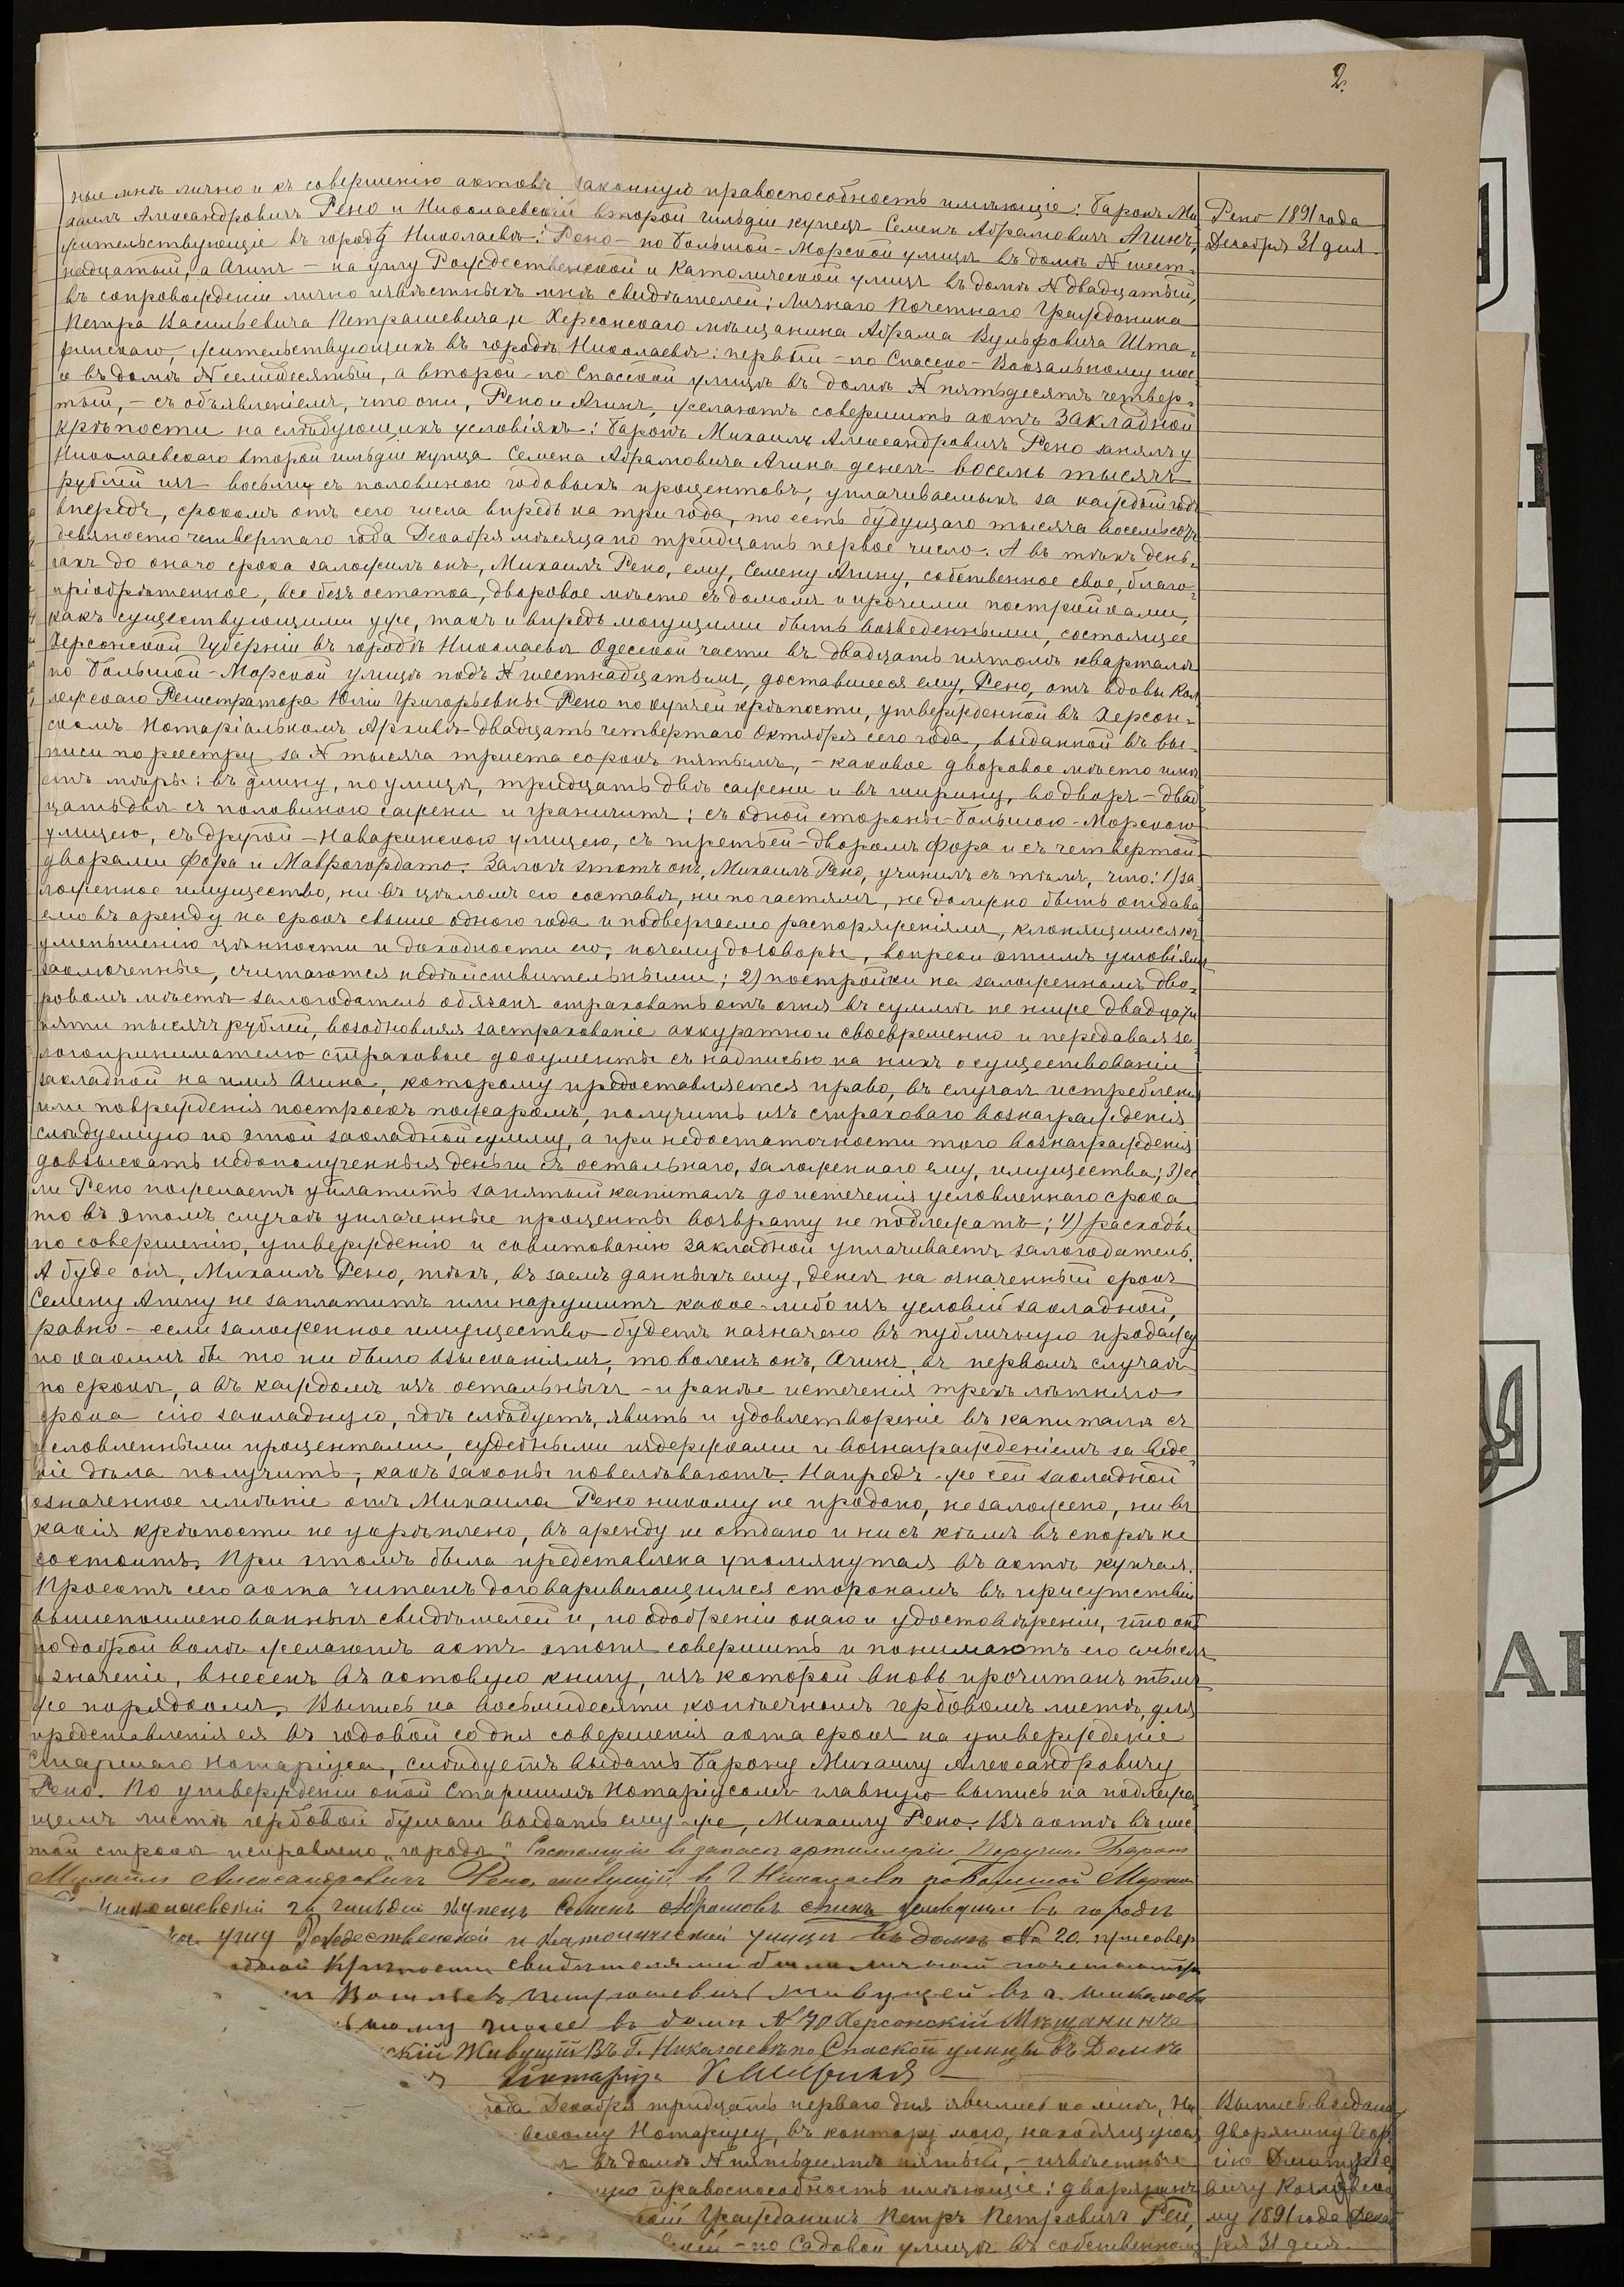 2.
ные мнѣ лично и къ совершенію актовъ законную правоспособность имѣющіе: Баронъ Ми-
хаилъ Александровичъ Рено и Николаевскій второй гильдіи купецъ Семенъ Абрамовичъ Агинъ,
жительствующіе въ городѣ Николаевѣ: Рено – по Большой-Морской улицѣ въ домѣ N шест-
надцатый, а Агинъ – на углу Рождественской и Католической улицъ въ домѣ N двадцатый,
въ сопровожденіи лично извѣстныхъ мнѣ свидѣтелей: Личнаго Почетнаго Гражданина
Петра Васильевича Петрашевича и Херсонскаго мѣщанина Абрама Вульфовича Шта-
жительствующихъ въ городѣ Николаевѣ: первый – по Спасско-Вокзальному шос-
е въ домѣ N семидесятый, а второй – по Спасской улицѣ въ домѣ N пятьдесятъ четвер-
тый, – съ объявленіемъ, что они, Рено и Агинъ, желаютъ совершить актъ Закладной
крѣпости на слѣдующихъ условіяхъ: Баронъ Михаилъ Александровичъ Рено занялъ у
Николаевскаго второй гильдіи купца Семена Абрамовича Агина денегъ восемь тысячъ
рублей изъ восьми съ половиною годовыхъ процентовъ, уплачиваемыхъ за каждый годъ
впередъ, срокомъ отъ сего числа впредь на три года, то есть будущаго тысяча восемьсотъ
девяносто четвертаго года Декабря мѣсяца по тридцать первое число. А въ тѣхъ день-
гахъ до онаго срока заложилъ онъ, Михаилъ Рено, ему, Семену Агину, собственное свое, благо-
пріобрѣтенное, все безъ остатка, дворовое мѣсто съ домомъ и прочими постройками,
какъ существующими уже, такъ и впредь могущими быть возведенными, состоящее
Херсонской Губерніи въ городѣ Николаевѣ Одесской части въ двадцать пятомъ кварталѣ
по Большой-Морской улицѣ подъ N шестнадцатымъ, доставшееся ему, Рено, отъ вдовы Кол-
лежскаго Регистратора Юліи Григорьевны Рено по купчей крѣпости, утвержденной въ Херсон-
скомъ Нотаріальномъ Архивѣ двадцать четвертаго Октября сего года, выданной въ вы-
писи по реестру за N тысяча триста сорокъ пятымъ, – каковое дворовое мѣсто имѣ-
етъ мѣры: въ длину, по улицѣ, тридцать двѣ сажени и въ ширину, во дворъ – двад-
цать двѣ съ половиною сажени и граничитъ: съ одной стороны – Большою-Морскою
улицею, съ другой – Наваринскою улицею, съ третьей – дворомъ Фора и съ четвертой –
дворами Фора и Маврогордато. Залогъ этотъ онъ, Михаилъ Рено, учинилъ съ тѣмъ, что: 1) за-
ложенное имущество, ни въ цѣломъ его составѣ, ни по частямъ, не должно быть отдава-
емо въ аренду на срокъ свыше одного года и подвергаемо распоряженіямъ, клонящимся къ
уменьшенію цѣнности и доходности его, почему договоры, вопреки этимъ условіямъ
заключенные, считаются недѣйствительными; 2) постройки на заложенномъ дво-
ровомъ мѣстѣ залогодатель обязанъ страховать отъ огня въ суммѣ не ниже двадцати
пяти тысячъ рублей, возобновляя застрахованіе аккуратно и своевременно и передавая за-
логопринимателю страховые документы съ надписью на нихъ о существованіи
закладной на имя Агина, которому предоставляется право, въ случаѣ истребленія
или поврежденія построекъ пожаромъ, получить изъ страховаго вознагражденія
слѣдуемую по этой закладной сумму, а при недостаточности того вознагражденія
довзыскать недополученныя деньги съ остальнаго, заложеннаго ему, имущества; 3) ес-
ли Рено пожелаетъ уплатить занятый капиталъ до истеченія условленнаго срока
то въ этомъ случаѣ уплаченные проценты возврату не подлежатъ; 4) расходы
по совершенію, утвержденію и совитованію закладной уплачиваетъ залогодатель.
А буде онъ, Михаилъ Рено, тѣхъ, въ заемъ данныхъ ему, денегъ на означенный срокъ
Семену Агину не заплатитъ или нарушитъ какое-либо изъ условій закладной,
равно – если заложенное имущество будетъ назначено въ публичную продажу
по какимъ бы то ни было взысканіямъ, то воленъ онъ, Агинъ, въ первомъ случаѣ
по срокѣ, а въ каждомъ изъ остальныхъ – и ранѣе истеченія трехъ лѣтняго
срока сію закладную, гдѣ слѣдуетъ, явить и удовлетвореніе въ капиталѣ съ
условленными процентами, судебными издержками и вознагражденіемъ за веде-
ніе дѣла получить, какъ законы повелѣваютъ. Напредъ же сей закладной
означенное имѣніе отъ Михаила Рено никому не продано, не заложено, ни въ
какія крѣпости не укрѣплено, въ аренду не отдано и ни съ кѣмъ въ спорѣ не
состоитъ. При этомъ была представлена упомянутая въ актѣ купчая.
Проектъ сего акта читанъ договаривающимся сторонамъ въ присутствіи
вышепоименованныхъ свидѣтелей и, по одобреніи онаго и удостовѣреніи, что они
по доброй волѣ желаютъ актъ этотъ совершить и понимаютъ его смыслъ
и значеніе, внесенъ въ актовую книгу, изъ которой вновь прочитанъ тѣмъ
же порядкомъ. Выпись на восьмидесяти копѣечномъ гербовомъ листѣ, для
представленія ея въ годовой со дня совершенія акта срокъ на утвержденіе
Старшаго Нотаріуса, слѣдуетъ выдать Барону Михаилу Александровичу
Рено. По утвержденіи оной Старшимъ Нотаріусомъ главную выпись на подлежа-
щемъ листѣ гербовой бумаги выдать ему же, Михаилу Рено. Въ актѣ въ шес-
той строкѣ исправлено „городѣ“. Состоящій въ запасѣ артиллеріи Поручикъ Баронъ
Михаилъ Александровичъ Рено, живущій въ Г. Николаевѣ по Большой Морской
Николаевскій 2й гильдіи купецъ Семенъ Абрамовъ Агинъ живущій въ городѣ
на углу Рождественской и Католической улицъ въ домѣ № 20. при совер
крѣпости свидѣтелями были
Васильевъ Петрашевичъ живущей въ г. Николаевѣ
шосе въ домѣ N 70 Херсонскій Мѣщанинъ
скій Живущій Въ Г. Николаевѣ по Спаской улицы въ Домѣ
Нотаріусъ
года Декабря тридцать перваго дня явились ко мнѣ, Ни-
Нотаріусу, въ контору мою, находящуюся
въ домѣ N пятьдесятъ пятый, – извѣстные
правоспособность имѣющіе: дворянинъ
Гражданинъ Петръ Петровичъ
по Садовой улицѣ въ собственномъ
Рено 1891 года
Декабря 31 дня.
Выпись выдана
дворянину Геор-
гію Дмитріе-
вичу
му 1891 года Декаб-
ря 31 дня.